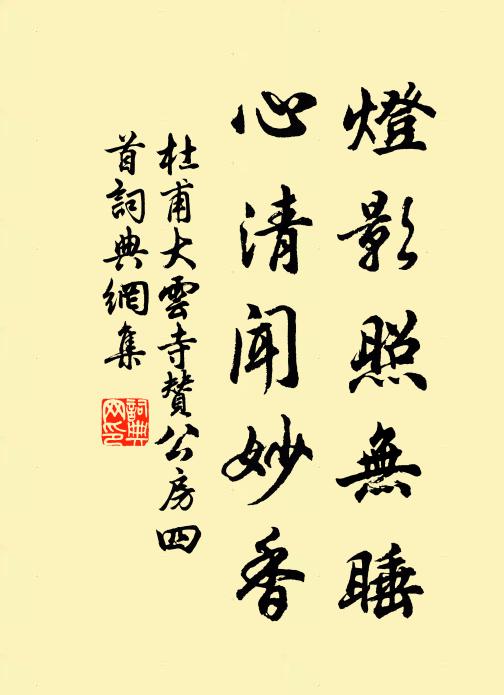 燈影照無睡
心清聞妙香
杜甫大雲寺贊公房四
首詞典網集
詞典
網印